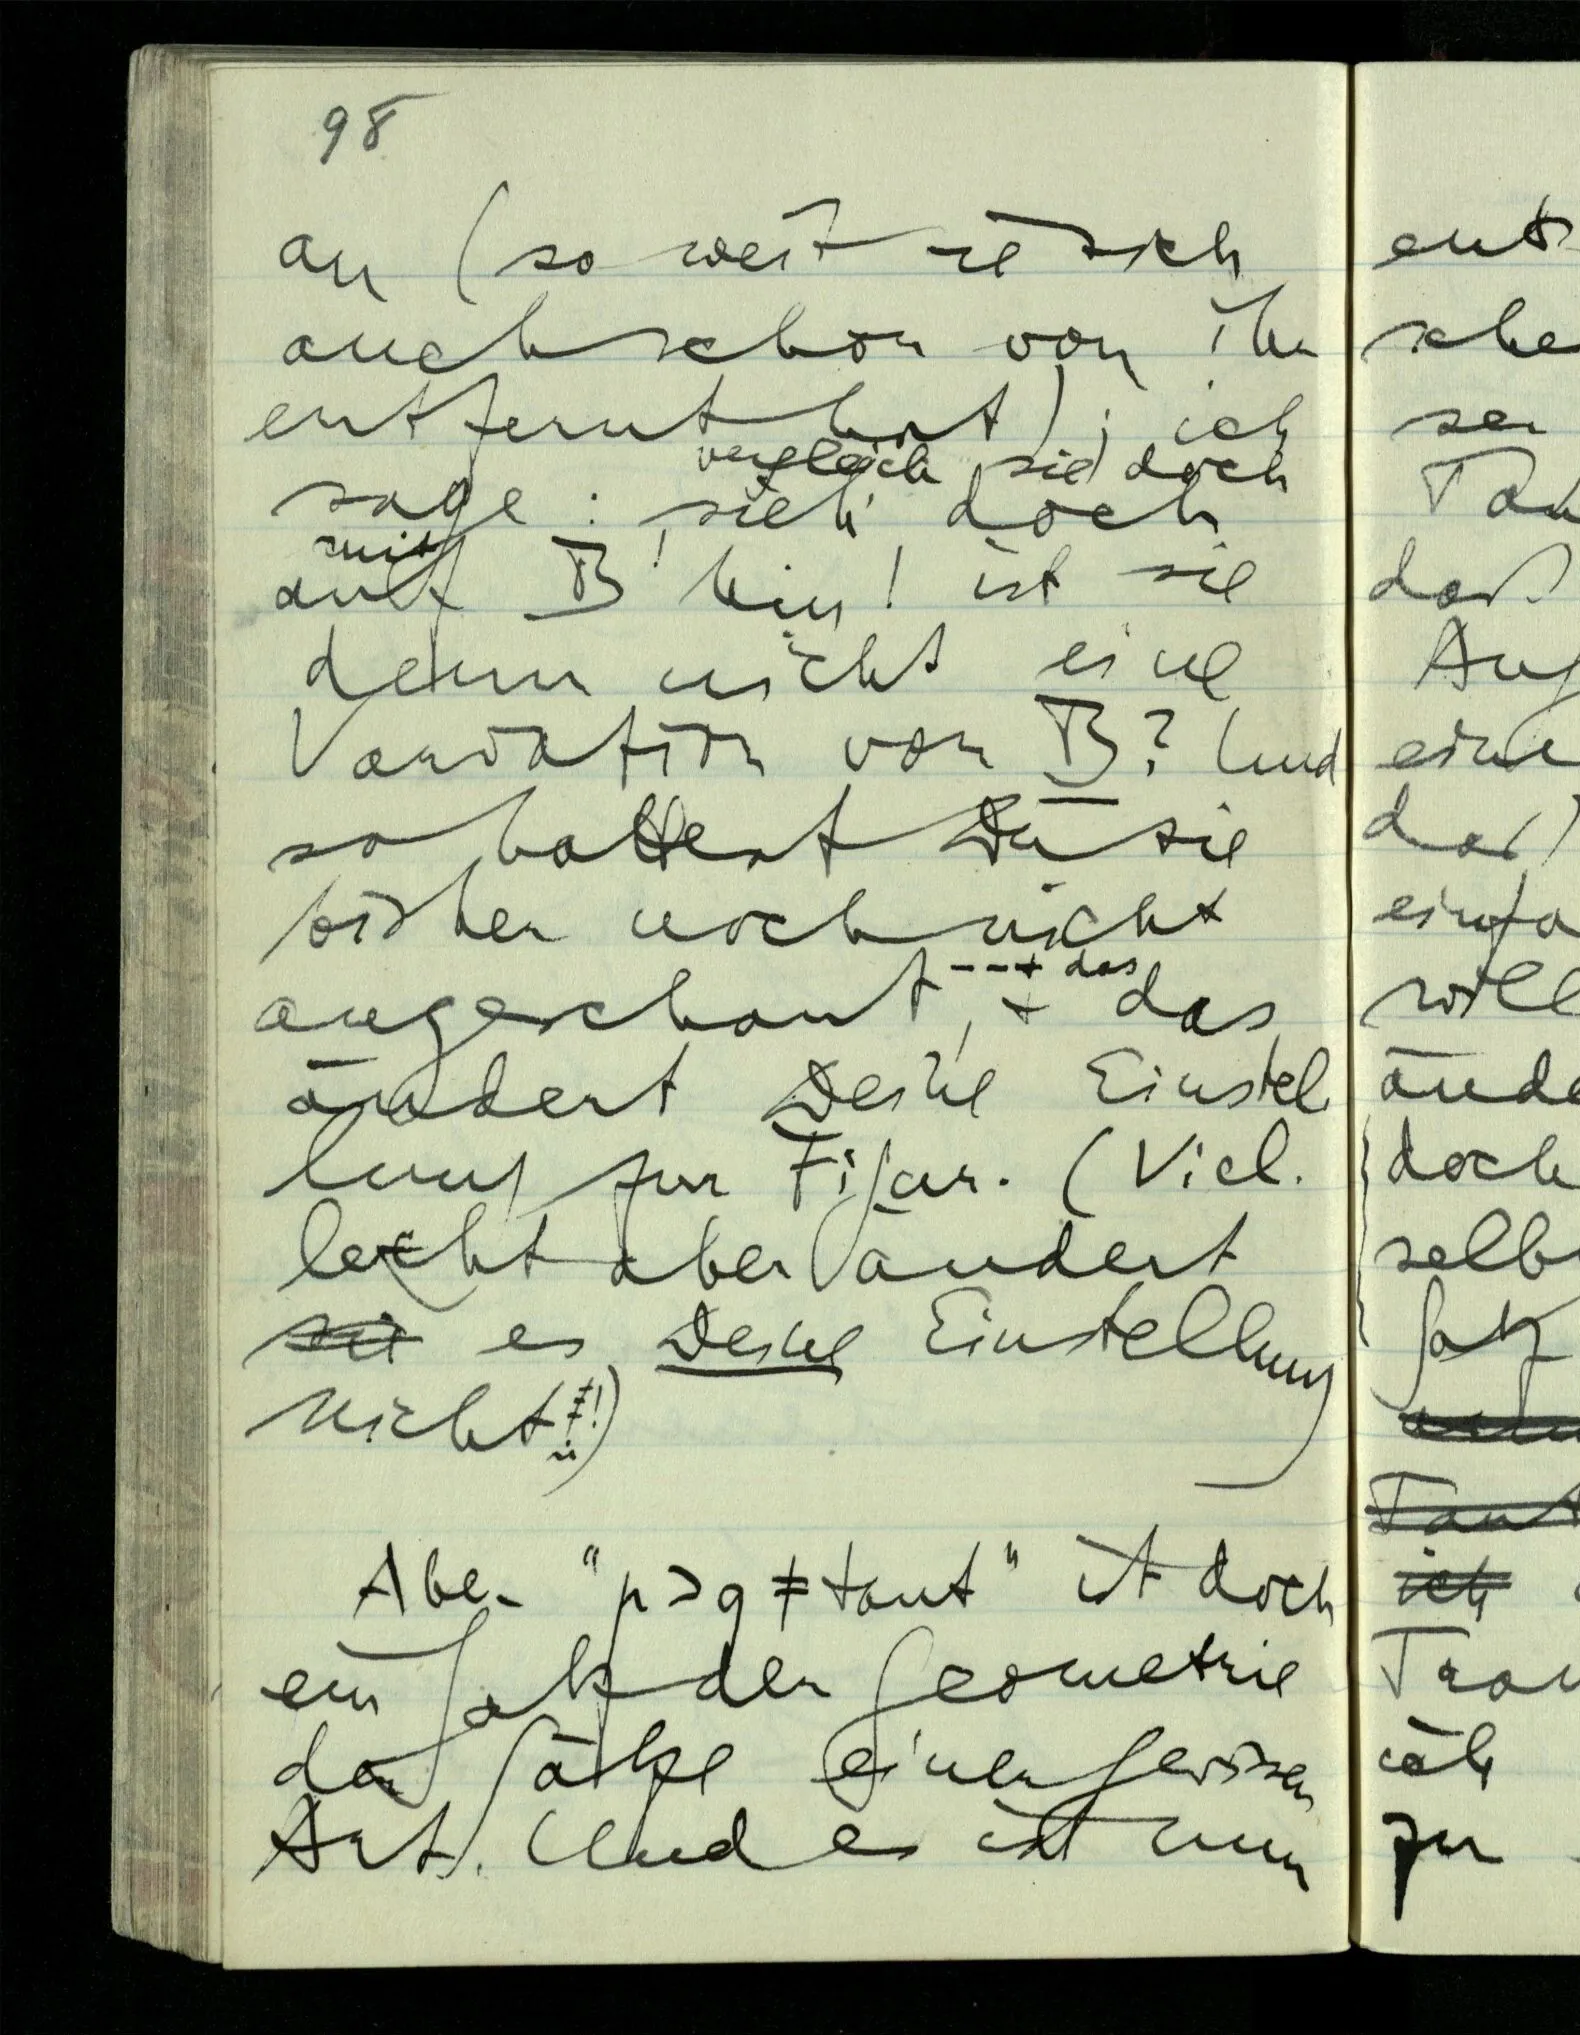 98
an (so weit sie sich
auch schon von ihr
entfernt hat); ich
vergleich sie doch
sage: sieh' doch
mit
auf B hin! ist sie
denn nicht eine
Variation von B? Und
so hattest Du sie
bisher noch nicht
--- + das
angeschaut, + das
ändert Deine Einstel
lung zur Figur. (Viel.
leicht aber ändert
sie es Deine Einstellung
nicht!!)
Aber "p⊃q ≠ taut" ist doch
ein Satz der Geometrie
der Sätze einer gewissen
Art. Und es ist nun
ent
sche
sen
daß
eine
einfa
will
ände
doch
selbs
Satz
ich
zu